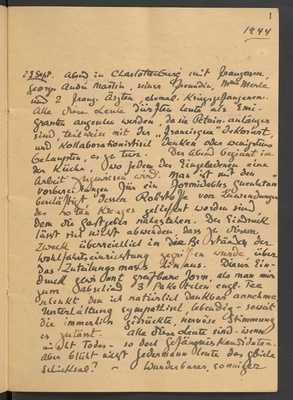 1
1944
23 Sept. Abend in Charlottenburg mit Franzosen,
George André Martin, seiner Freundin, Mme
und 2 franz. Ärzten, ehemal. Kriegsgefangenen.
Alle diese Leute dürften heute als Emi-
granten angesehen werden, da sie Pétain-anhänger
sind, teilweise mit der "Francisque" dekoriert,
und Kollaborationistisch denken oder wenigstens
behaupten, es zu tun. Der Abend beginnt in
der Küche, wo jedem der Eingeladenen eine
Arbeit zugewiesen wird. Man ist mit den
Vorbereitungen für ein formidables
beschäftigt, dessen Rohstoffe von Zuwendungen
des roten Kreuzes geliefert worden sind,
dem die Gastgeber nahestehen. Der Eindruck
lässt sich nicht abwenden, dass zu diesem
Zweck überreichlich in die Bestände der
Wohlfahrtseinrichtung gegriffen wurde über
das Zuteilungsmass hinaus. Dieser Ein-
druck gewinnt greifbare Form, als man mir
zum Abschied 2 Paketchen engl. Tee
schenkt, den ich natürlich dankbar annehme.
Unterhaltung sympathisch lebendig - soweit
die immerhin gedrückte, nervöse Stimmung
es zulässt. Alle diese Leute sind - wenn
nicht Todes- so doch Gefängniskandidaten.
Aber blüht nicht jedermann heute das gleiche
Schicksal? - Wunderbarer, sonniger